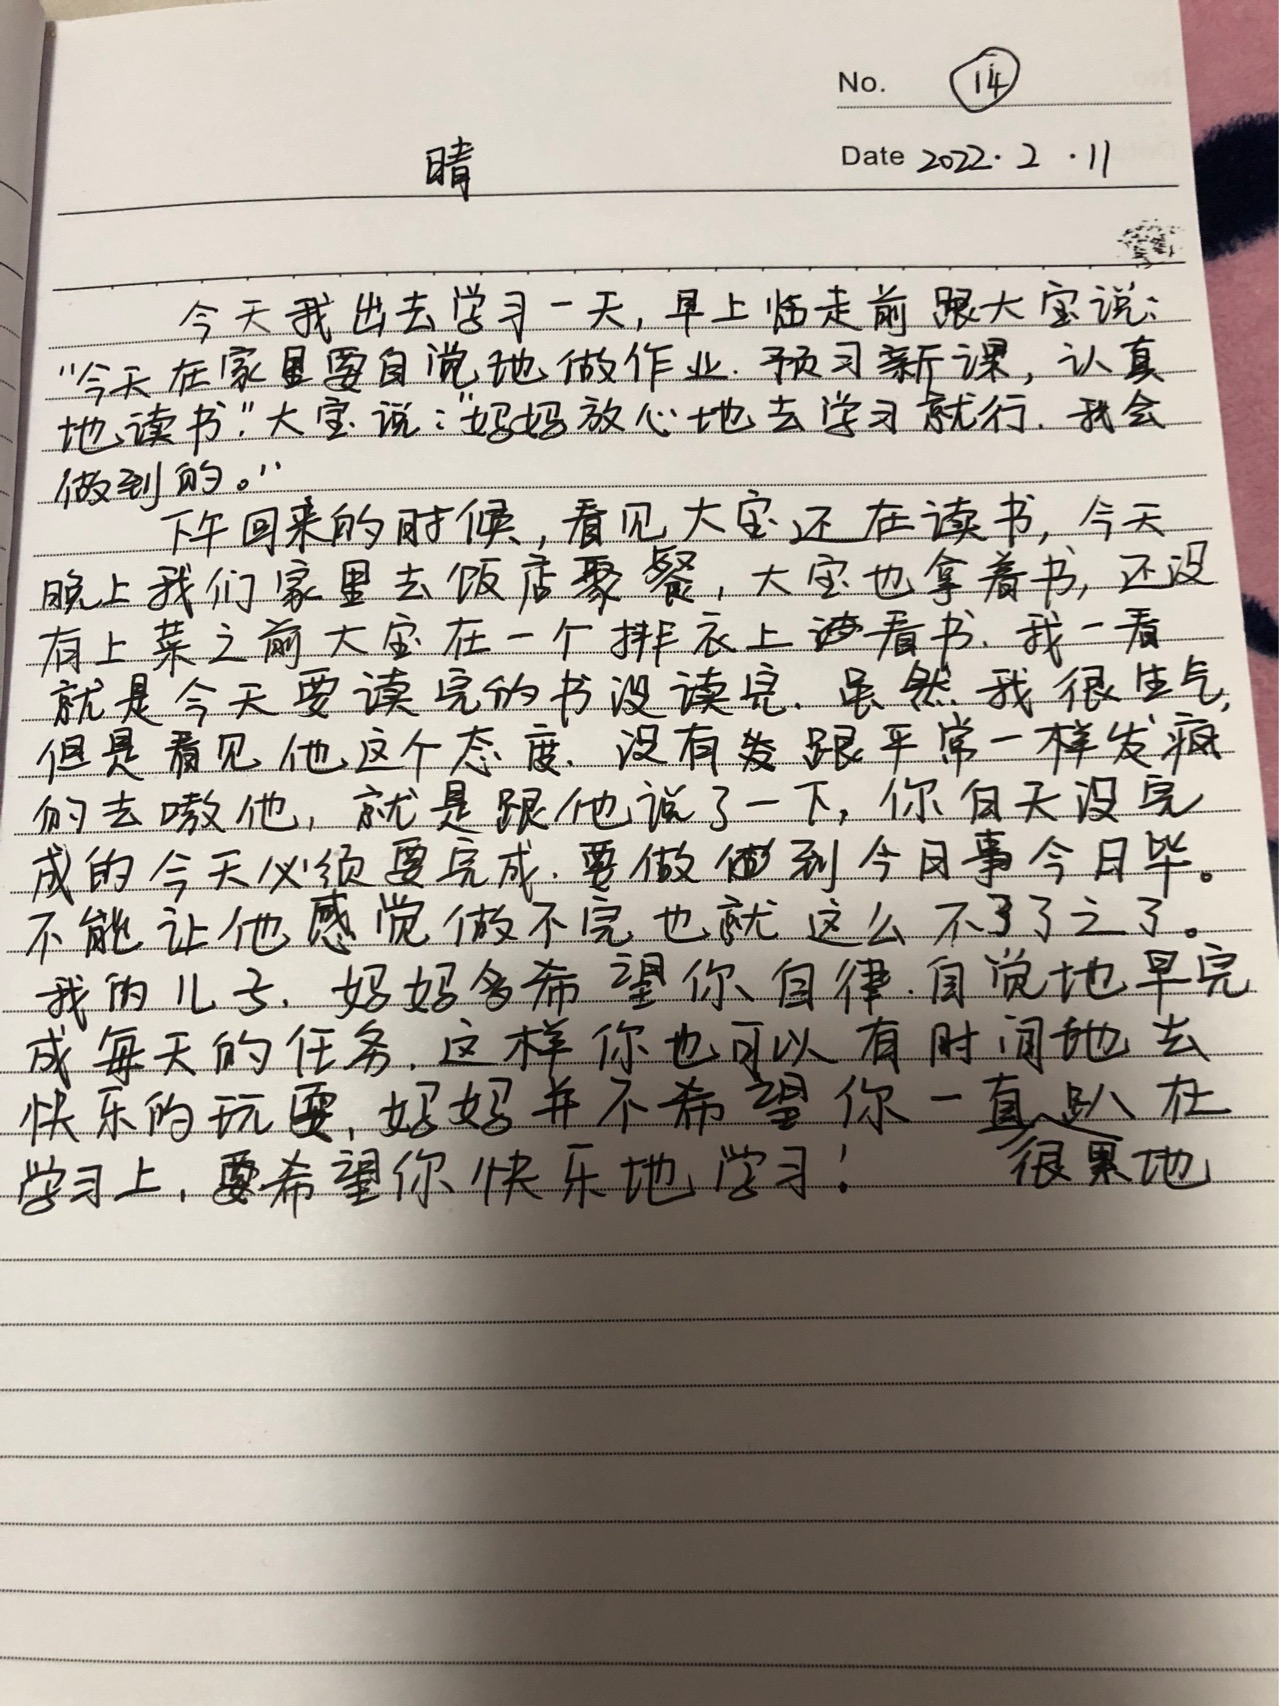 No. 14
晴 Date 2022.2.11
今天我出去学习一天,早上临走前跟大宝说:
"今天在家里要自觉地做作业.预习新课,认真
地读书."大宝说:"妈妈放心地去学习就行.我会
做到的。"
下午回来的时候,看见大宝还在读书,今天
晚上我们家里去饭店聚餐,大宝也拿着书,还没
有上菜之前大宝在一个排衣上看书.我一看
就是今天要读完的书没读完.虽然我很生气,
但是看见他这个态度.没有跟平常一样发疯
的去嗷他,就是跟他说了一下,你白天没完
成的今天必须要完成.要做到今日事今日毕。
不能让他感觉做不完也就这么不了了之了。
我的儿子.妈妈多希望你自律.自觉地早完
成每天的任务.这样你也可以有时间地去
快乐的玩耍,妈妈并不希望你一直趴在
学习上,要希望你快乐地学习! 很累地